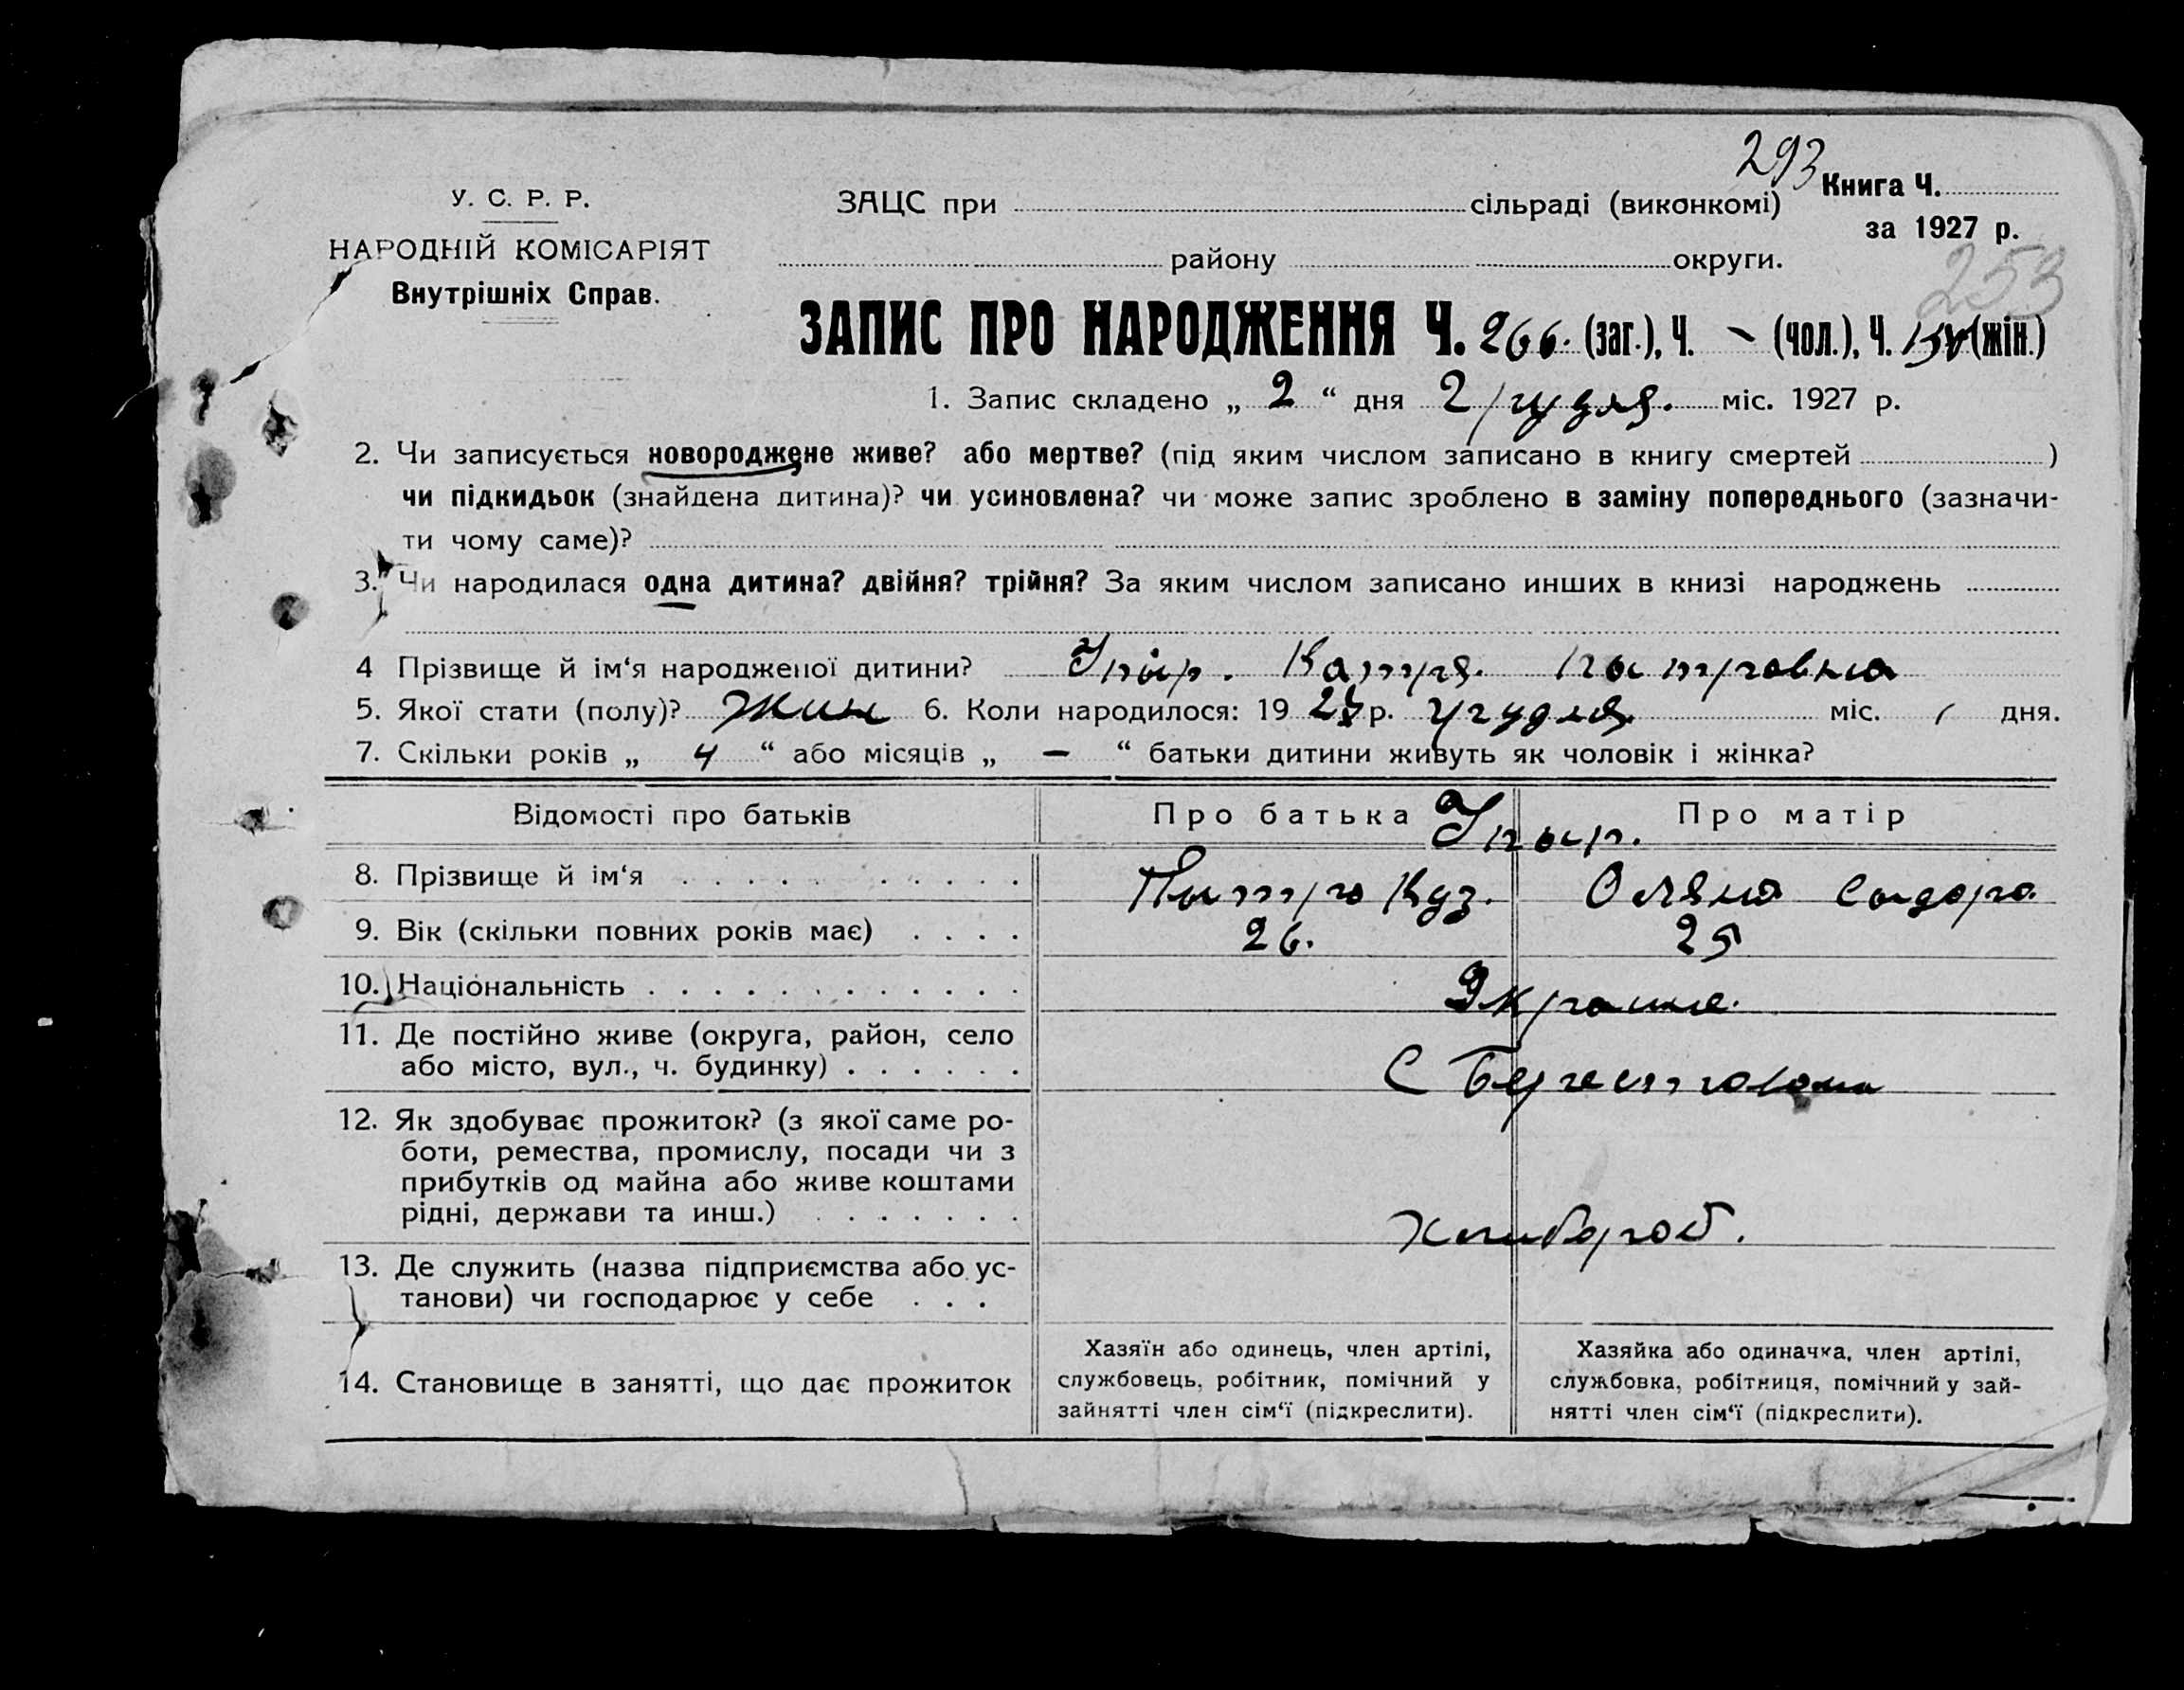 293
У. С. Р. Р.
НАРОДНІЙ КОМІСАРІЯТ
Внутрішніх Справ.
ЗАЦС при сільраді (виконкомі)
району округи.
Книга Ч.
за 1927 р.
253
ЗАПИС ПРО НАРОДЖЕННЯ Ч. 266. (заг.), Ч. – (чол.), Ч. (жін.)
1. Запис складено „ 2 “ дня міс. 1927 р.
2. Чи записується новороджене живе? або мертве? (під яким числом записано в книгу смертей )
чи підкидьок (знайдена дитина)? чи усиновлена? чи може запис зроблено в заміну попереднього (зазначи-
ти чому саме)?
3. Чи народилася одна дитина? двійня? трійня? За яким числом записано инших в книзі народжень
4 Прізвище й ім‘я народженої дитини? Катря Петровна
5. Якої стати (полу)? Жин 6. Коли народилося: 19 27 р. грудня міс. 1 дня.
7. Скільки років „ 4 “ або місяців „ — “ батьки дитини живуть як чоловік і жінка?
Відомості про батьків Про батька Про матір
8. Прізвище й ім‘я Петро Куз. Оляна Сидора
9. Вік (скільки повних років має) 26. 25
10. Національність Украине.
11. Де постійно живе (округа, район, село
або місто, вул., ч. будинку) С Берестовеньки
12. Як здобуває прожиток? (з якої саме ро-
боти, ремества, промислу, посади чи з
прибутків од майна або живе коштами
рідні, держави та инш.) Хлибороб.
13. Де служить (назва підприємства або ус-
танови) чи господарює у себе
14. Становище в занятті, що дає прожиток
Хазяїн або одинець, член артілі,
службовець, робітник, помічний у
зайнятті член сім‘ї (підкреслити).
Хазяйка або одиначка, член артілі,
службовка, робітниця, помічний у зай-
нятті член сім‘ї (підкреслити).